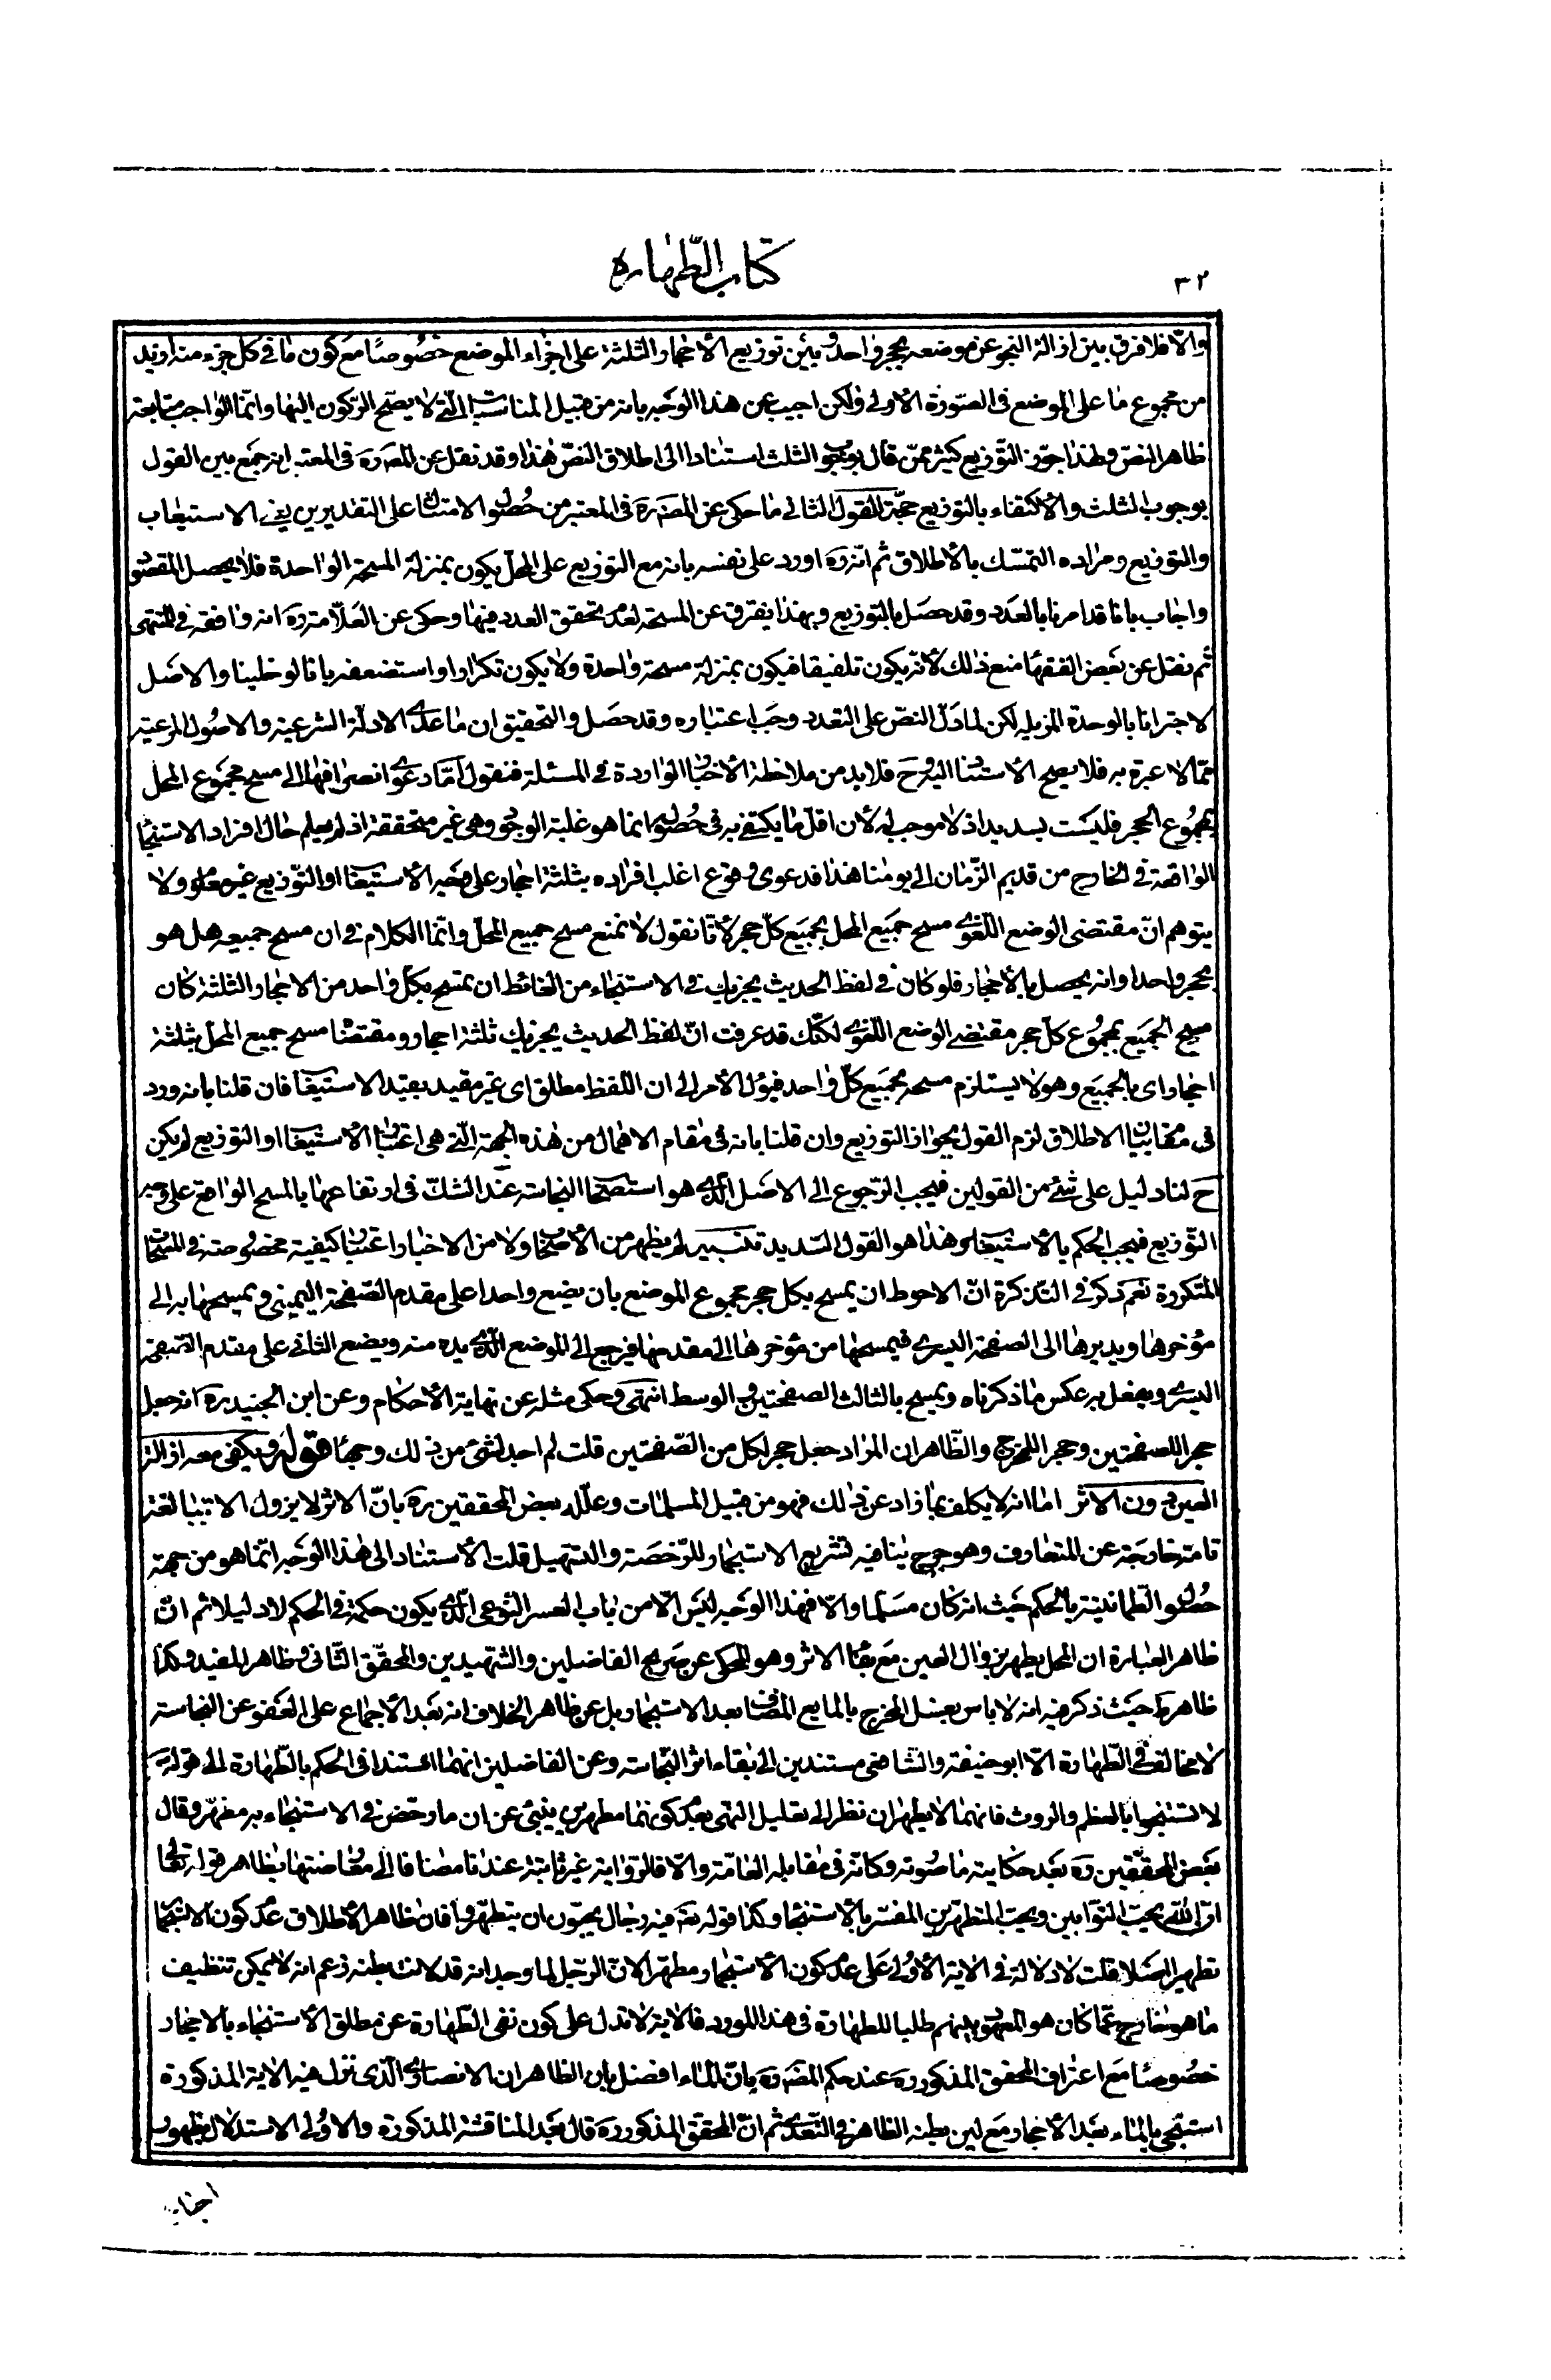 كتاب الطّهاره
٣٢
والّا فلا فرق بين ازالة النجو عن موضعه بحجر واحد وبين توزيع الأحجار الثلثة على اجزاء الموضع خصوصًا مع كون ما في كل جزء منه ازيد
من مجموع ما على الموضع في الصّورة الأولى ولكن اجيب عن هذا الوجه بانه من قبيل المناسبات الّتي لا يصحّ الركون اليها وانّما الواجب متابعة
ظاهر النصّ ولهذا جوّز التّوزيع كثير ممّن قال بوجوب الثلث استنادا الى اطلاق النصّ هذا وقد نقل عن المصره في المعتبر انه جمع بين القول
بوجوب الثلث والأكتفاء بالتوزيع حجّة القول الثاني ما حكى عن المصره في المعتبر من حصول الامتثال على التقديرين يعني الاستيعاب
والتوزيع ومراده التمسّك بالأطلاق ثم انّه ره اورد على نفسه بانه مع التوزيع على المحلّ يكون بمنزلة المسحة الواحدة فلا يحصل المقصود
واجاب بانا قد امرنا بالعدد وقد حصل بالتوزيع وبهذا يفترق عن المسحة لعدم تحقق العدد فيها وحكى عن العلّامة ره انه وافقه في المنتهى
ثم نقل عن بعض الفقهاء منع ذلك لأنّه يكون تلفيقا فيكون بمنزلة مسحة واحدة ولا يكون تكرارا واستضعفه بانا لو خلينا والاصل
لاجتزانا بالوحدة المزيلة لكن لما دلّ النصّ على التعدد وجب اعتباره وقد حصل والتحقيق ان ما عدا الادلّة الشرعية والاصول المرعية
ممّا لا عبرة به فلا يصح الأستناد اليه وح فلا بد من ملاحظة الأخبار الواردة في المسئلة فنقول امّا دعوى انصرافها الى مسح مجموع المحل
بمجموع الحجر فليست بسديد اذ لا موجب له لأن اقلّ ما يكتفى به في حصوله انما هو غلبة الوجود وهي غير متحققة اذ لم يعلم حال افراد الاستنجاء
الواقعة في الخارج من قديم الزّمان الى يومنا هذا فدعوى وقوع اغلب افراده بثلثة احجار على وجه الأستيعاب او التّوزيع غير معلوم ولا
يتوهم انّ مقتضى الوضع اللّغوي مسح جميع المحل بجميع كلّ حجر لأنّا نقول لا نمنع مسح جميع المحلّ وانّما الكلام في ان مسح جميعه هل هو
بحجر واحد او انه يحصل بالأحجار فلو كان في لفظ الحديث يجزيك في الاستنجاء من الغائط ان تمسح بكلّ واحد من الاحجار الثلثة كان
مسح الجميع بمجموع كلّ حجر مقتضى الوضع اللّغوي لكنّك قد عرفت انّ لفظ الحديث يجزيك ثلثة احجار ومقتضاه مسح جميع المحلّ بثلثة
احجار اي بالجميع وهو لا يستلزم مسحه بجميع كلّ واحد فيؤل الأمر الى ان اللّفظ مطلق اي غير مقيد بقيد الاستيعاب فان قلنا بانه ورد
في مقام بيان الاطلاق لزم القول بجواز التوزيع وان قلنا بانه في مقام الاهمال من هذه الجهة الّتي هي اعتبار الأستيعاب او التوزيع لم يكن
ح لنا دليل على شئ من القولين فيجب الرّجوع الى الاصل الّذي هو استصحاب النجاسة عند الشكّ في ارتفاعها بالمسح الواقع على وجه
التّوزيع فيجب الحكم بالأستيعاب وهذا هو القول السّديد تنبيه لم يظهر من الأصحاب ولا من الاخبار اعتبار كيفية مخصوصة في المسحات
المتكررة نعم ذكر في التّذكرة انّ الاحوط ان يمسح بكل حجر مجموع الموضع بان يضع واحدا على مقدم الصّفحة اليمنى ويمسحها به الى
مؤخرها ويديرها الى الصفحة اليسرى فيمسحها من مؤخرها الى مقدمها فيرجع الى الموضع الّذي بدء منه ويضع الثاني على مقدم الصّفحة
اليسرى ويفعل به عكس ما ذكرناه ويمسح بالثالث الصفحتين والوسط انتهى وحكى مثله عن نهاية الأحكام وعن ابن الجنيد ره انه جعل
حجرا للصفحتين وحجرا للمخرج والظّاهر ان المراد جعل حجر لكل من الصّفحتين قلت لم اجد لشئ من ذلك وجها قوله ويكفى معه ازالة
العين دون الأثر امّا انه لا يكلف بما زاد عن ذلك فهو من قبيل المسلمات وعلّله بعض المحققين ره بانّ الاثر لا يزول الا بمبالغة
تامة خارجة عن المتعارف وهو حرج ينافيه تشريع الاستجمار للرّخصة والتسهيل قلت الأستناد الى هذا الوجه انّما هو من جهة
حصول الطّمانينة بالحكم حيث انه كان مسلّما والّا فهذا الوجه ليس الّا من باب العسر النّوعي الّذي يكون حكمة في الحكم لا دليلا ثم انّ
ظاهر العبارة ان المحل يطهر بزوال العين مع بقاء الاثر وهو المحكى عن صريح الفاضلين والشّهيدين والمحقّق الثّاني وظاهر المفيد وكذا
ظاهر ط حيث ذكر فيه انه لا باس بغسل المخرج بالمايع المضاف بعد الاستجمار بل عن ظاهر الخلاف انه بعد الأجماع على العفو عن النجاسة
لا مخالف في الطّهارة الّا ابو حنيفة والشّافعي مستندين الى بقاء اثر النّجاسة وعن الفاضلين انهما استندا في الحكم بالطّهارة الى قوله
لا تستنجوا بالعظم والروث فانهما لا يطهران نظرا الى تعليل النهى بعدم كونهما مطهرين ينبئ عن ان ما رخّص في الاستنجاء به مطهّر وقال
بعض المحققين ره بعد حكاية ما صورته وكانّه في مقابله العامّة والّا فالرّواية غير ثابتة عندنا مضافا الى معارضتها بظاهر قوله تعالى
انّ اللّه يحبّ التوّابين ويحبّ المتطهّرين المفسّر بالأستنجاء وكذا قوله تعه فيه رجال يحبّون ان يتطهّروا فان ظاهر الأطلاق عدم كون الاستجمار
تطهيرا اصلا قلت لا دلالة في الاية الأولى على عدم كون الأستجمار مطهّرا لانّ الرّجل لما وجد انه قد لانت بطنه زعم انه لا يمكن تنظيف
ما هو خارج عمّا كان هو المعهود بينهم طلبا للطهارة في هذا المورد فالاية لا تدل على كون نفى الطّهارة عن مطلق الأستنجاء بالاحجار
خصوصًا مع اعتراف المحقق المذكور ره عند حكم المصره بانّ الماء افضل بان الظاهر ان الانصاري الّذي نزل فيه الاية المذكورة
استنجى بالماء بعد الأحجار مع لين بطنه الظاهر في التّعدي ثم انّ المحقق المذكور ره قال بعد المناقشة المذكورة والأولى الاستدلال بظهور
اجزاء